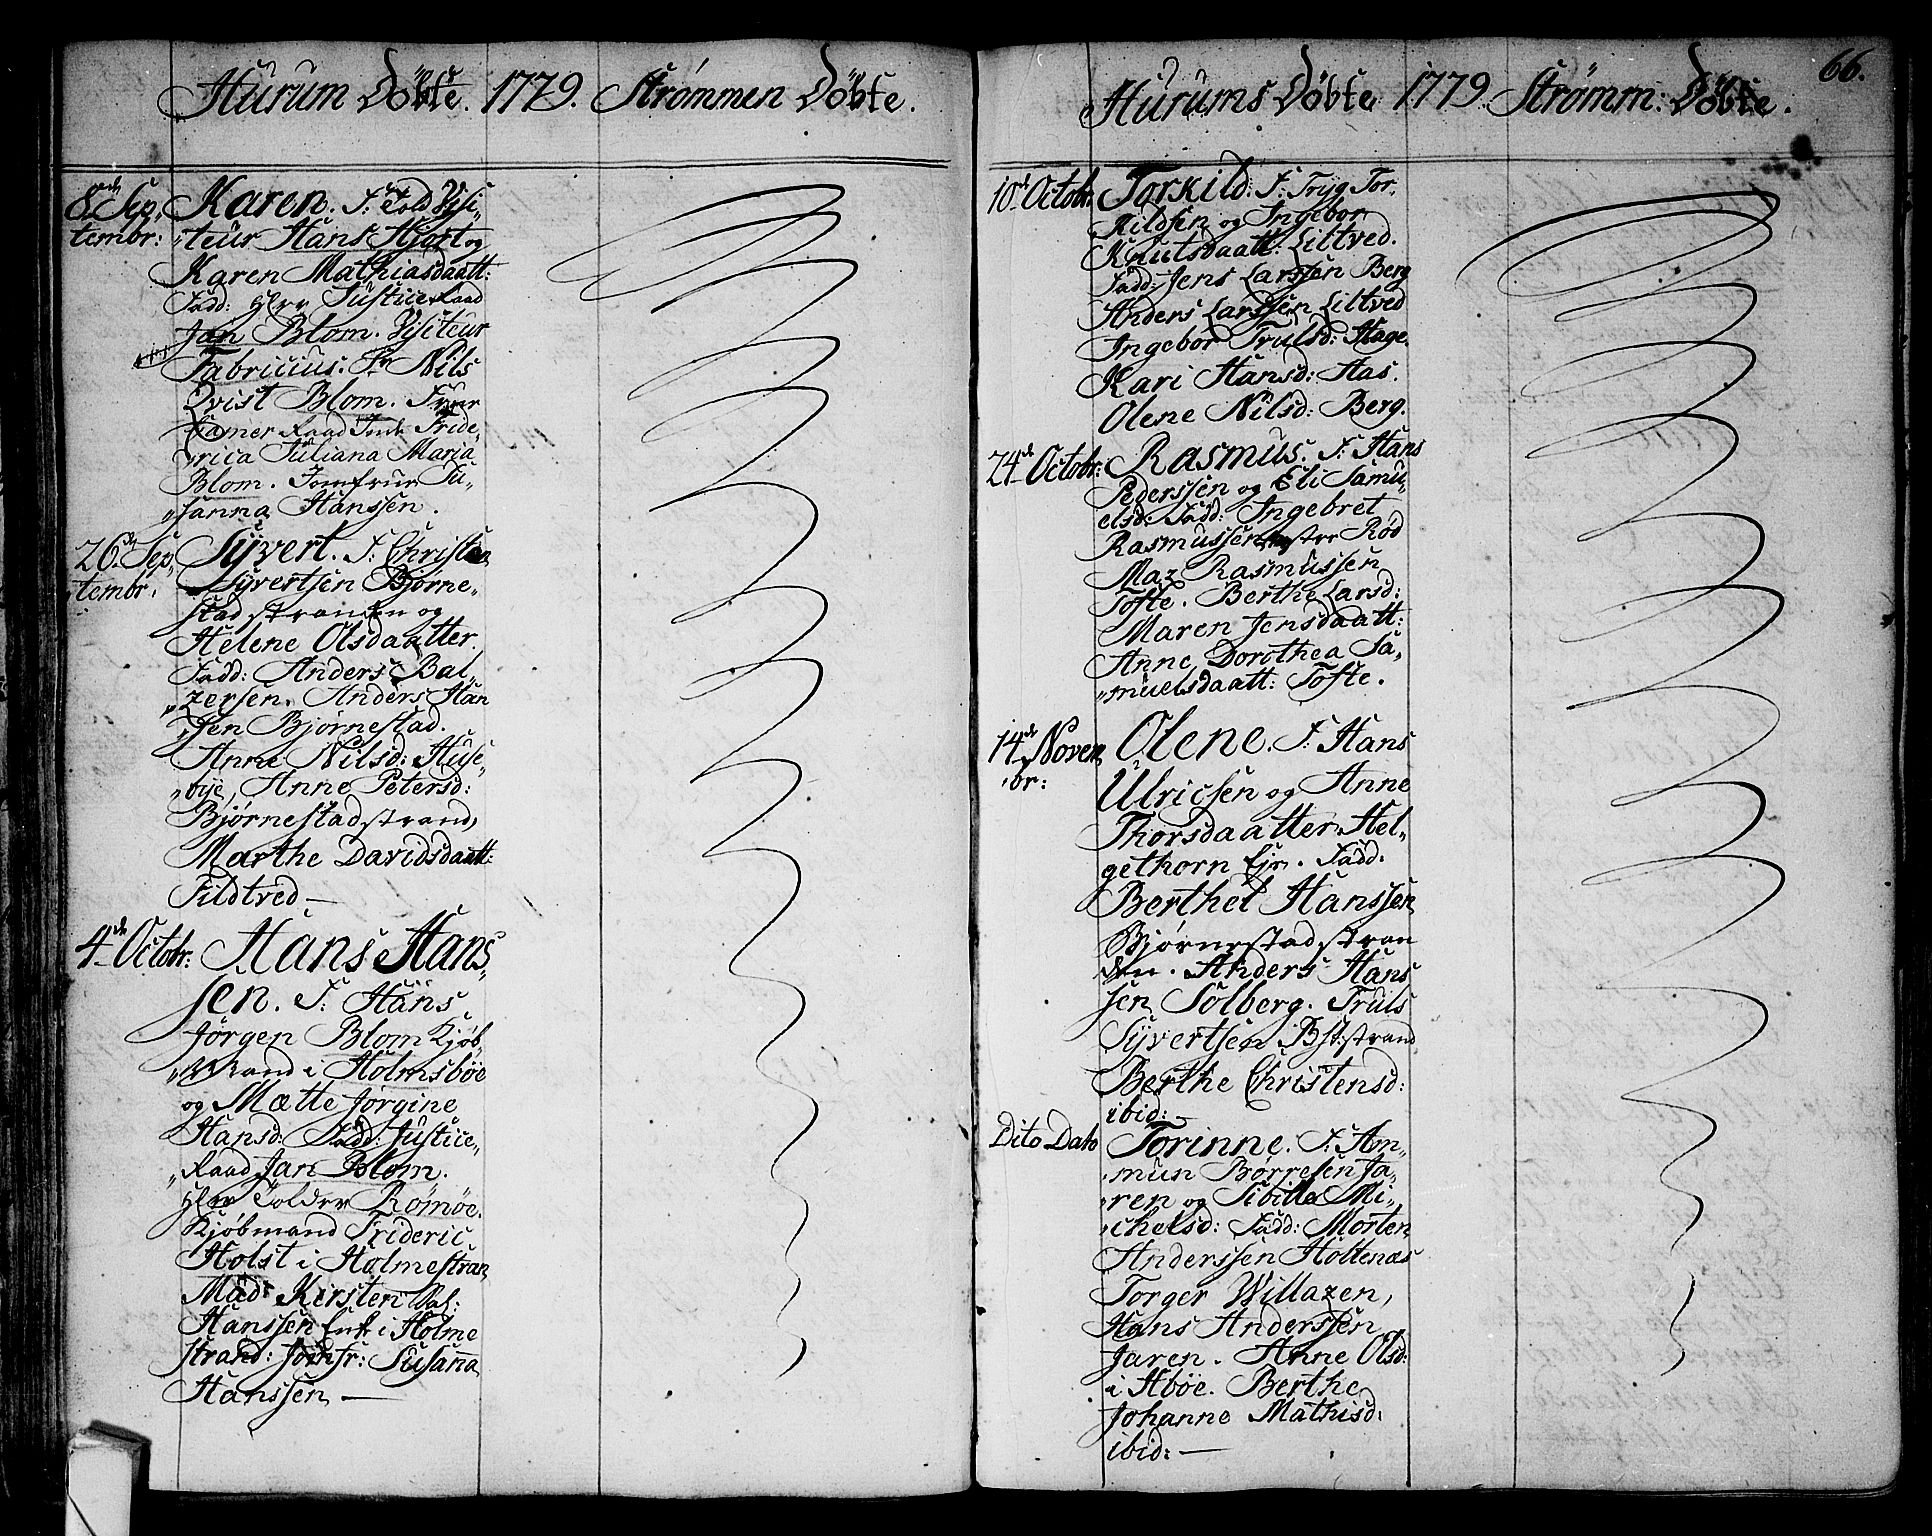 Hurum Döbte. 1779. Strømmen Döbte.
8de Sep,
tembr:
Karen. F: Told Visi,
teur Hans Hjort og
Karen Mathiasdaatt:
Fadd: Herr Justice Raad
Jan Blom. Visiteur
Fabricius. Sr Nils
Qvist Blom. Frue
Kamer Raad Fride,
rica Juliana Maria
Blom. Jomfrue Su,
sanna Hanssen.
26de Sep,
tembr.
Syvert. F: Christen
Syvertsen Bjørne,
stad stranden og
Helene Olsdaatter.
Fadd: Anders Bal,
zersen. Anders Han
sen Bjørnestad.
Anne Nilsd: Huse,
bye, Anne Petersd:
Bjørnestadstrand,
Marthe Davidsdaatt:
Tildtved —
4de Octobr:
Hans Hans,
sen. F: Hans
Jørgen Blom Kjøb,
Mand i Holmsböe
og Mætte Jørgine
Hansd: Fadd: Justice,
Raad Jan Blom.
Herr Tolder Römöe.
Kjøbmand Frideric
Holst i Holmestran,
Mad: Kirsten Sal:
Hanssen Enk i Holme
strand: Jomfr: Susanna
Hanssen —
66.
Hurums Döbte 1779 Strömm: Döbte.
10de Octobr:
Torkild: F: Tryg Tor,
kildsen og Ingebor
Knutsdaatt: Liltved.
Fadd: Jens Larssen Berg
Anders Larssen Liltved
Ingebor Trulsd: Hage.
Kari Hansd: Aas.
Olene Nilsd: Berg.
24de Octobr:
Rasmus. F: Hans
Pederssen og Eli Samu,
elsd: Fadd: Ingebret
Rasmussen Rød
Maz Rasmussen
Tofte. Berthe Larsd:
Maren Jensdaatt:
Anne Dorothea Sa,
muelsdaatt: Tofte.
14de Novem,
br:
Olene. F: Hans
Ulricsen og Anne
Thorsdaatter Hel,
gethorn Eje. Fadd:
Berthel Hanssen
Bjørnestadstran
den. Anders Hans
sen Solberg. Truls
Syvertsen Bst:strand
Berthe Christensd:
ibid:
Dito Dato
Torinne. F: Am,
mun Børresen Ja,
ren og Sibille Mi,
chelsd: Fadd: Morten
Anderssen Holtenæs
Torger Willazen,
Hans Anderssen
Jaren. Anne Olsd:
i Hböe. Berthe
Johanne Mathisd:
ibid: —